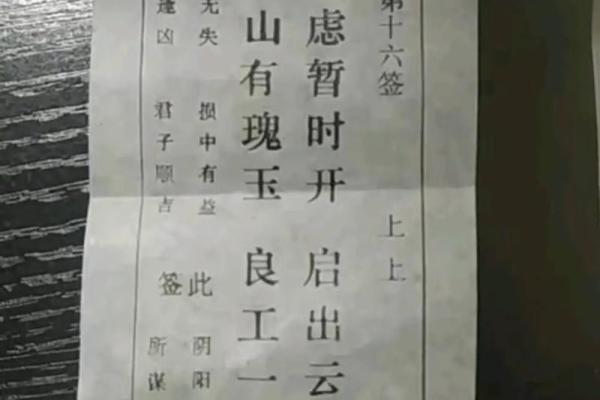 第十六签 上上
虑暂时开 启出云
山有瑰玉 良工一
无失 损中有益
逢凶 君子顺吉
此签
阴阳
所谋